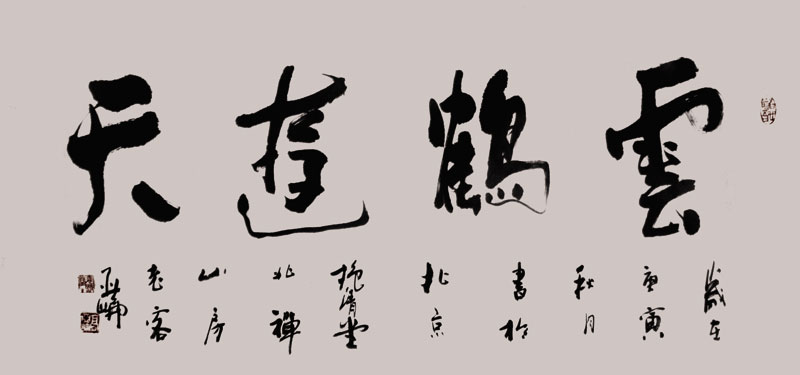 雲鶴遊天
歲在庚寅秋月書於北京清堂北禪山房老客